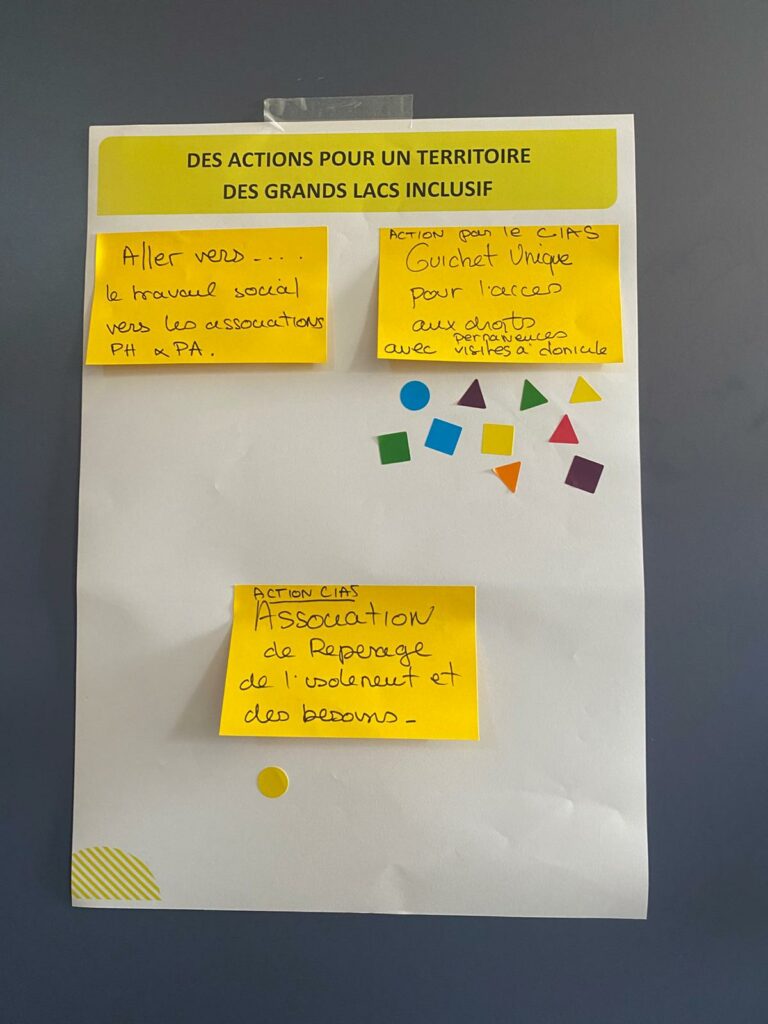 DES ACTIONS POUR UN TERRITOIRE
DES GRANDS LACS INCLUSIF
Aller vers.....
le travail social
vers les associations
PH & PA.
ACTION par le CIAS
Guichet Unique
pour l'acces
aux droits
permanences
avec visites à domicile
ACTION CIAS
Association
de Reperage
de l'isolement et
des besoins_